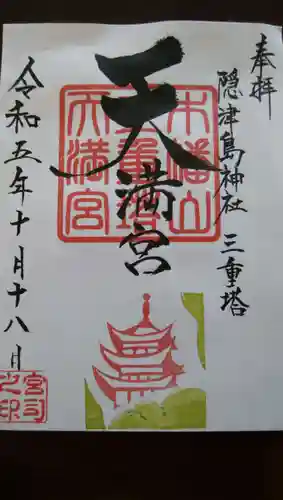 奉拝
隠津島神社 三重塔
天満宮
令和五年十月十八月
木幡山
三重塔
天満宮
宮司
之印